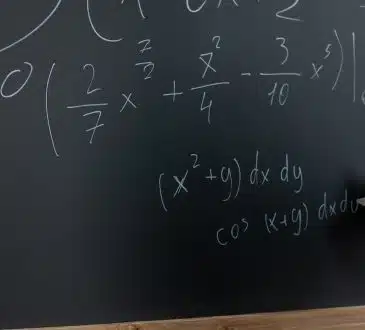 0 ( 2/7 x^(7/2) + x^2/4 - 3/10 x^5 ) |
(x^2 + y) dx dy
cos (x+y) dx dy